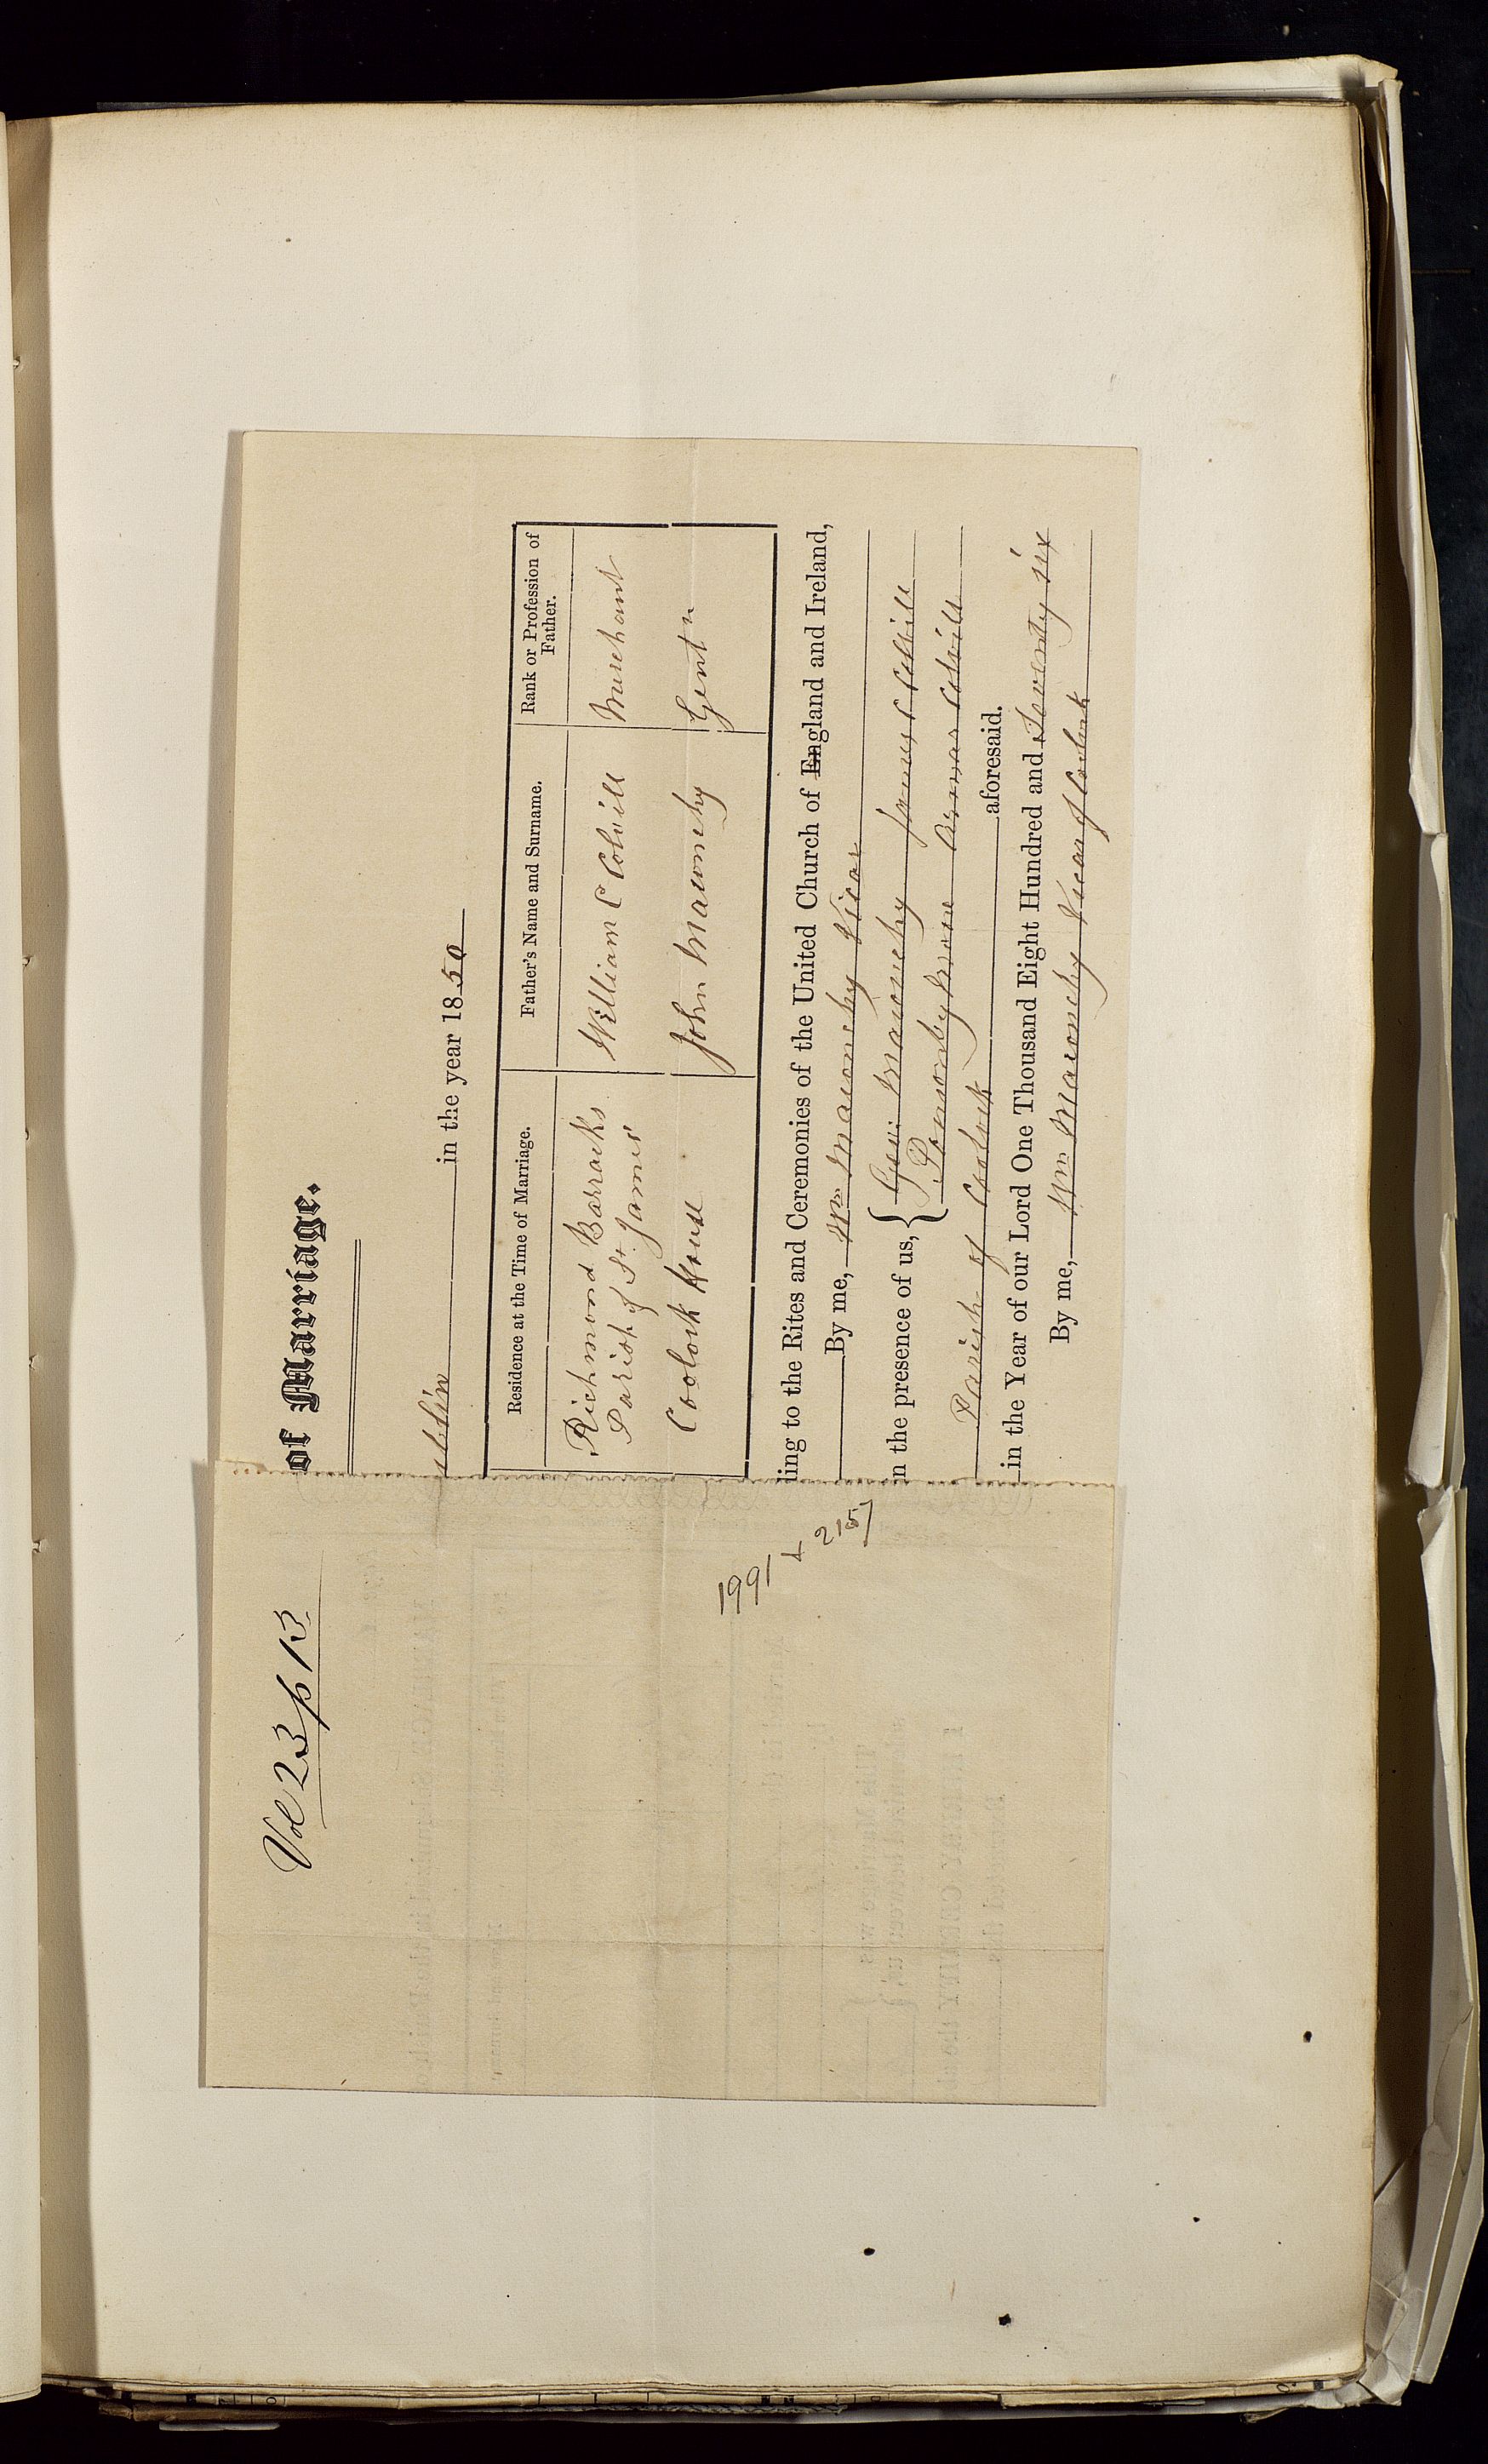 Vol 23 p 13
1991
+ 215
of Marriage.
ublin in the year 1850
Residence at the Time of Marriage. Father's Name and Surname. Rank or Profession of Father.
Richmond Barracks William C Colvill Merchant
Parish of St. James'
Coolock House John Maconchy Gentn
ding to the Rites and Ceremonies of the United Church of England and Ireland,
By me, Wm Maconchy Vicar
n the presence of us, Geo: Maconchy James C Colvill
Ponsonby Moore Colvill
Parish of Coolock aforesaid.
in the Year of our Lord One Thousand Eight Hundred and Seventy six
By me, Wm Maconchy Vicar of Coolock